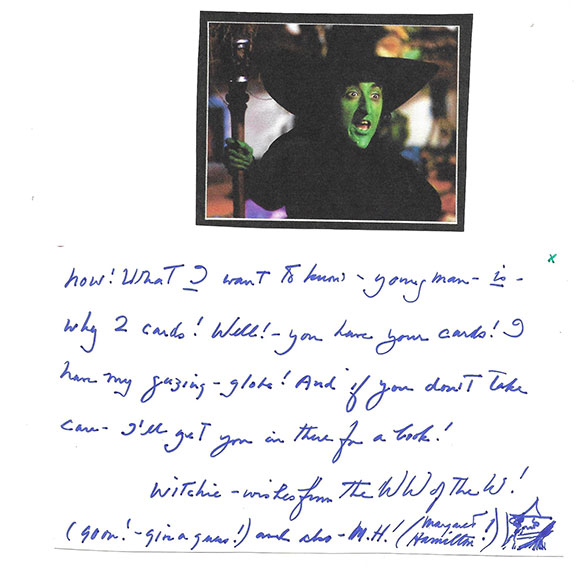 now! What I want to know - young man - is -
why 2 cards! Well! - you have your cards! I
have my gazing - globe! And if you don't take
care - I'll get you in there for a look!
Witchie - wishes from the WW of the W!
(goon! - gin a guess!) and also - M.H.! (Margaret Hamilton!)